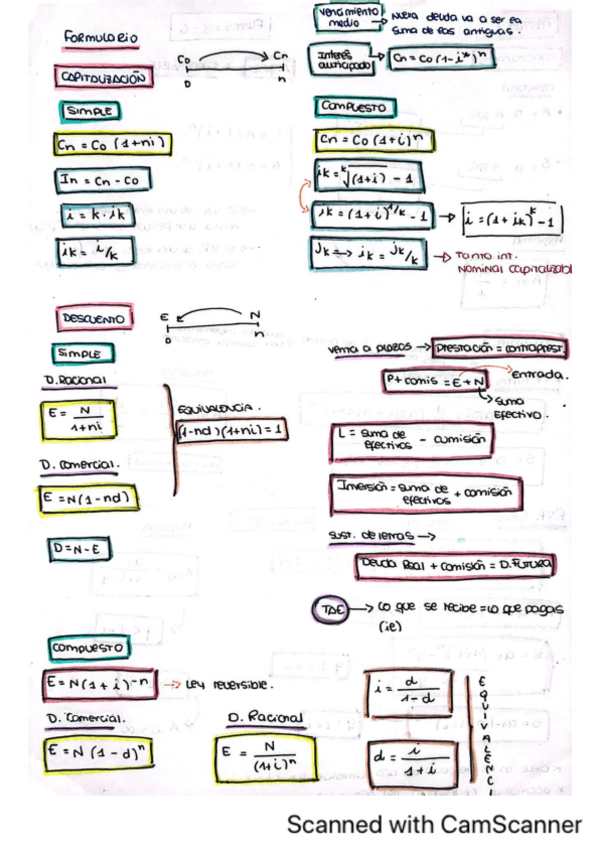 Formulario
CAPITALIZACIÓN
Co Cn
0 n
SIMPLE
Cn = Co (1+ni)
In = Cn - Co
i = k · ik
ik = i/k
Vencimiento medio → Nueva deuda va a ser la suma de las antiguas.
Interés anticipado → Cn = Co (1 - i*)^n
COMPUESTO
Cn = Co (1+i)^n
ik = ᵏ√(1+i) - 1
ik = (1+i)^1/k - 1 → i = (1 + ik)^k - 1
Jk → ik = Jk/k → Tanto int. Nominal capitalizabl
DESCUENTO
E N
0 n
SIMPLE
D. Racional
E = N / 1+ni
EQUIVALENCIA.
(1-nd)(1+ni) = 1
D. Comercial.
E = N (1 - nd)
D = N - E
Venta a plazos → Prestación = contraprest.
P + comis = E + N
Entrada.
Suma Efectivo.
L = suma de efectivos - comisión
Inversión = suma de efectivos + comisión
Sust. de letras →
Deuda Real + comisión = D. Futura
TAE → Lo que se recibe = lo que pagas
(ie)
COMPUESTO
E = N (1 + i)^-n → Ley reversible.
D. Comercial.
E = N (1 - d)^n
D. Racional
E = N / (1+i)^n
i = d / 1 - d
d = i / 1 + i
EQUIVALENCI
Scanned with CamScanner